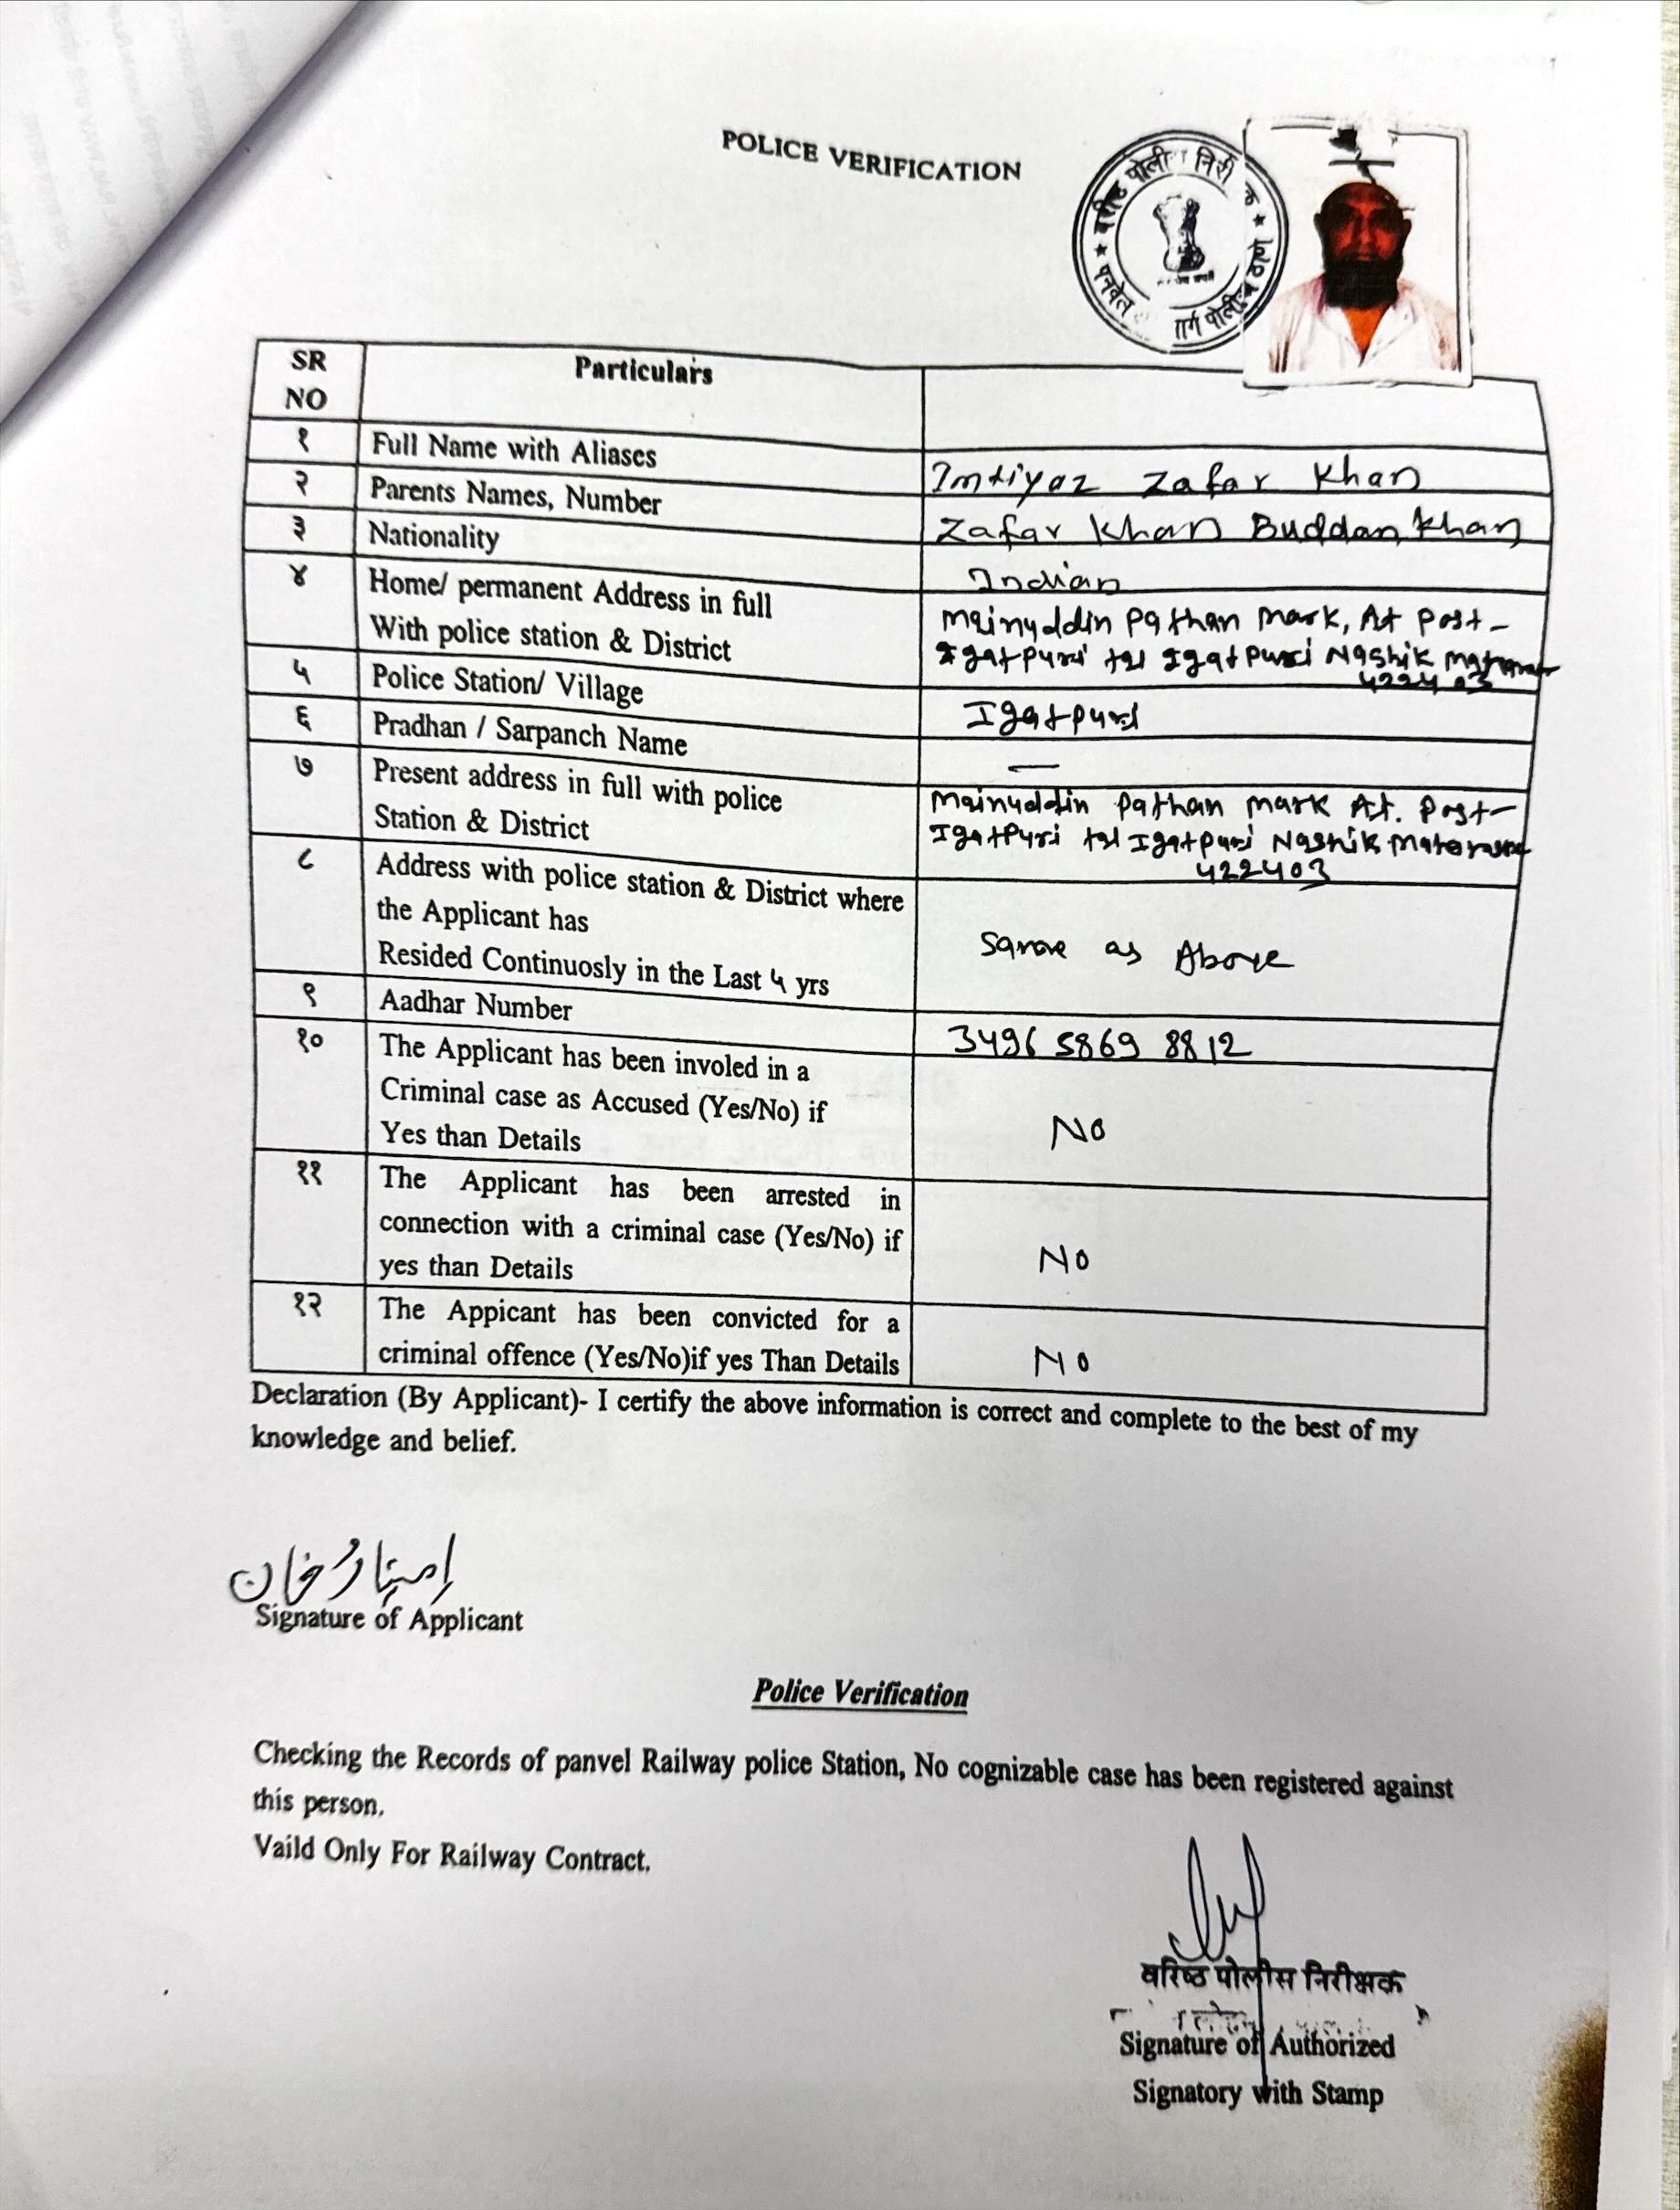 POLICE VERIFICATION
वरीष्ठ पोली निरी क
पनवेल मार्ग पोलीस ठाणे
SR NO
Particulars
१ Full Name with Aliases Imtiyaz Zafar Khan
२ Parents Names, Number Zafar Khan Buddan Khan
३ Nationality Indian
४ Home/ permanent Address in full Mainuddin Pathan Mark, At Post-
With police station & District Igatpuri tal Igatpuri Nashik
422403
५ Police Station/ Village Igatpuri
६ Pradhan / Sarpanch Name —
७ Present address in full with police Mainuddin Pathan Mark At. Post-
Station & District Igatpuri tal Igatpuri Nashik
422403
८ Address with police station & District where
the Applicant has Same as Above
Resided Continuosly in the Last ५ yrs
९ Aadhar Number 3496 5869 8812
१० The Applicant has been involed in a
Criminal case as Accused (Yes/No) if No
Yes than Details
११ The Applicant has been arrested in
connection with a criminal case (Yes/No) if No
yes than Details
१२ The Appicant has been convicted for a
criminal offence (Yes/No)if yes Than Details No
Declaration (By Applicant)- I certify the above information is correct and complete to the best of my
knowledge and belief.
امتیاز خان
Signature of Applicant
Police Verification
Checking the Records of panvel Railway police Station, No cognizable case has been registered against
this person.
Vaild Only For Railway Contract.
वरिष्ठ पोलीस निरीक्षक
Signature of Authorized
Signatory with Stamp